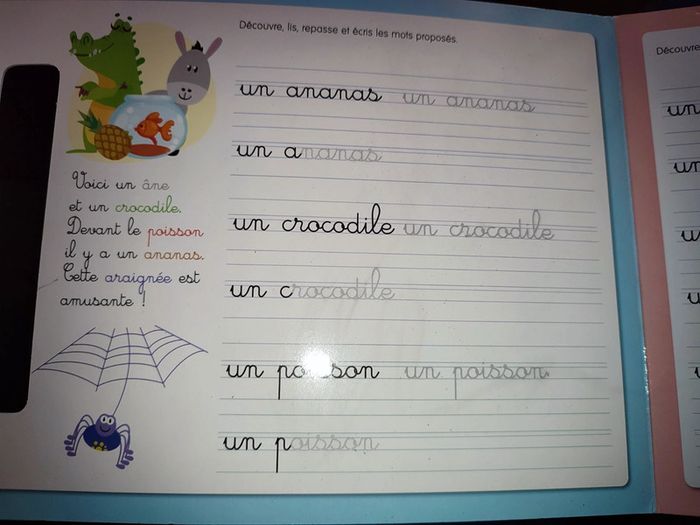 Découvre, lis, repasse et écris les mots proposés.
un ananas un ananas
un ananas
un crocodile un crocodile
un crocodile
un poisson un poisson
un poisson
Voici un âne
et un crocodile.
Devant le poisson
il y a un ananas.
Cette araignée est
amusante !
Découvre
un
un
un
un